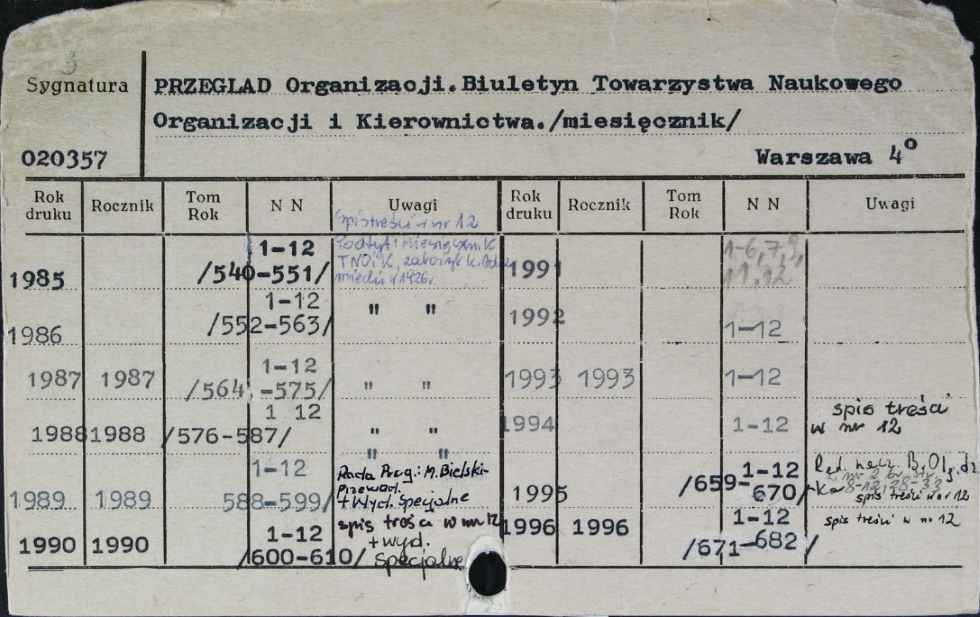 3
Sygnatura
PRZEGLAD Organizacji.Biuletyn Towarzystwa Naukowego
Organizacji i Kierownictwa./miesięcznik/
020357
Warszawa 4o
Rok druku Rocznik Tom Rok N N Uwagi Rok druku Rocznik Tom Rok N N Uwagi
spis treści w nr 12
1985 1-12 /540-551/
TNOiK,
1986 1-12 /552-563/ " "
1987 1987 1-12 /564,-575/ " "
1988 1988 1 12 /576-587/ " "
" "
1989 1989 1-12 588-599/ Rada Prog.: M. Bielski-
Przewod.
+ Wyd. Specjalne
1990 1990 1-12 /600-610/ spis treści w nr 12
+ wyd.
specjalne
1991 1-6,7,9,
11.12
1992 1-12
1993 1993 1-12
1994 1-12 spis treści
w nr 12
1995 1-12 /659-670/ Red. nacz B.
spis treści w nr 12
1996 1996 1-12 /671-682/ spis treści w nr 12